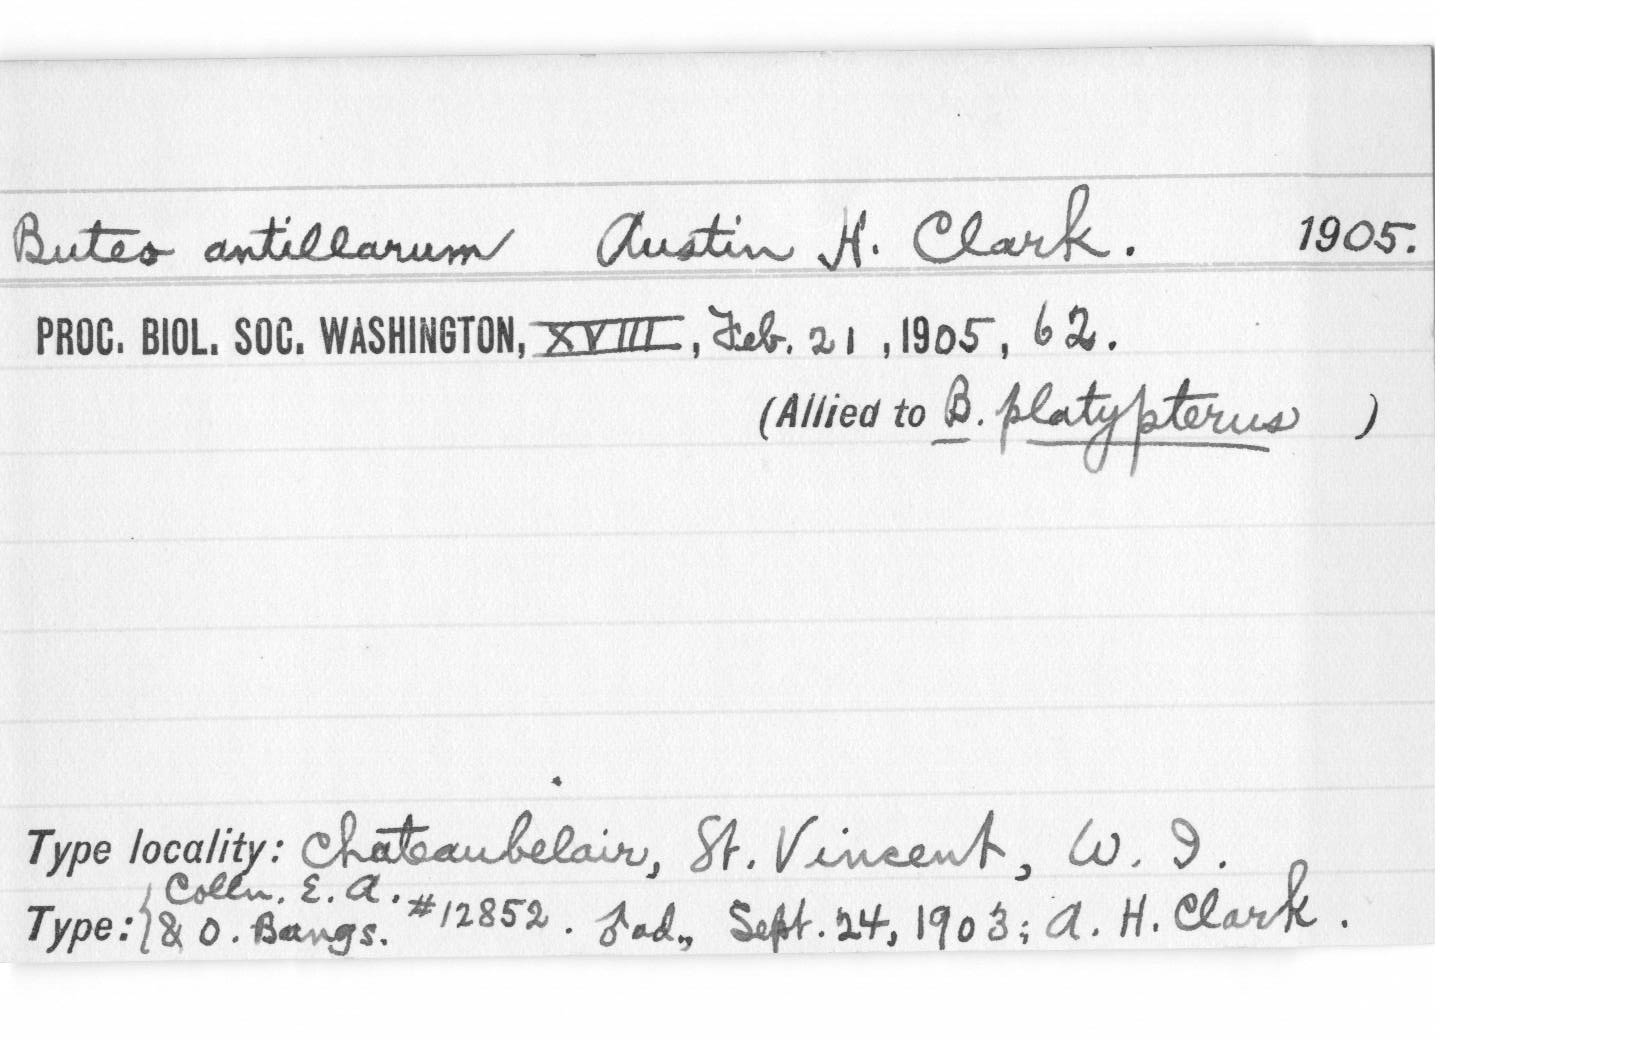 Buteo antillarum Austin H. Clark. 1905.
PROC. BIOL. SOC. WASHINGTON, XVIII, Feb. 21, 1905, 62.
(Allied to B. platypterus )
Type locality: Chateaubelair, St. Vincent, W. I.
Colln. E. A.
Type: & O. Bangs. #12852. ad., Sept. 24, 1903; A. H. Clark.